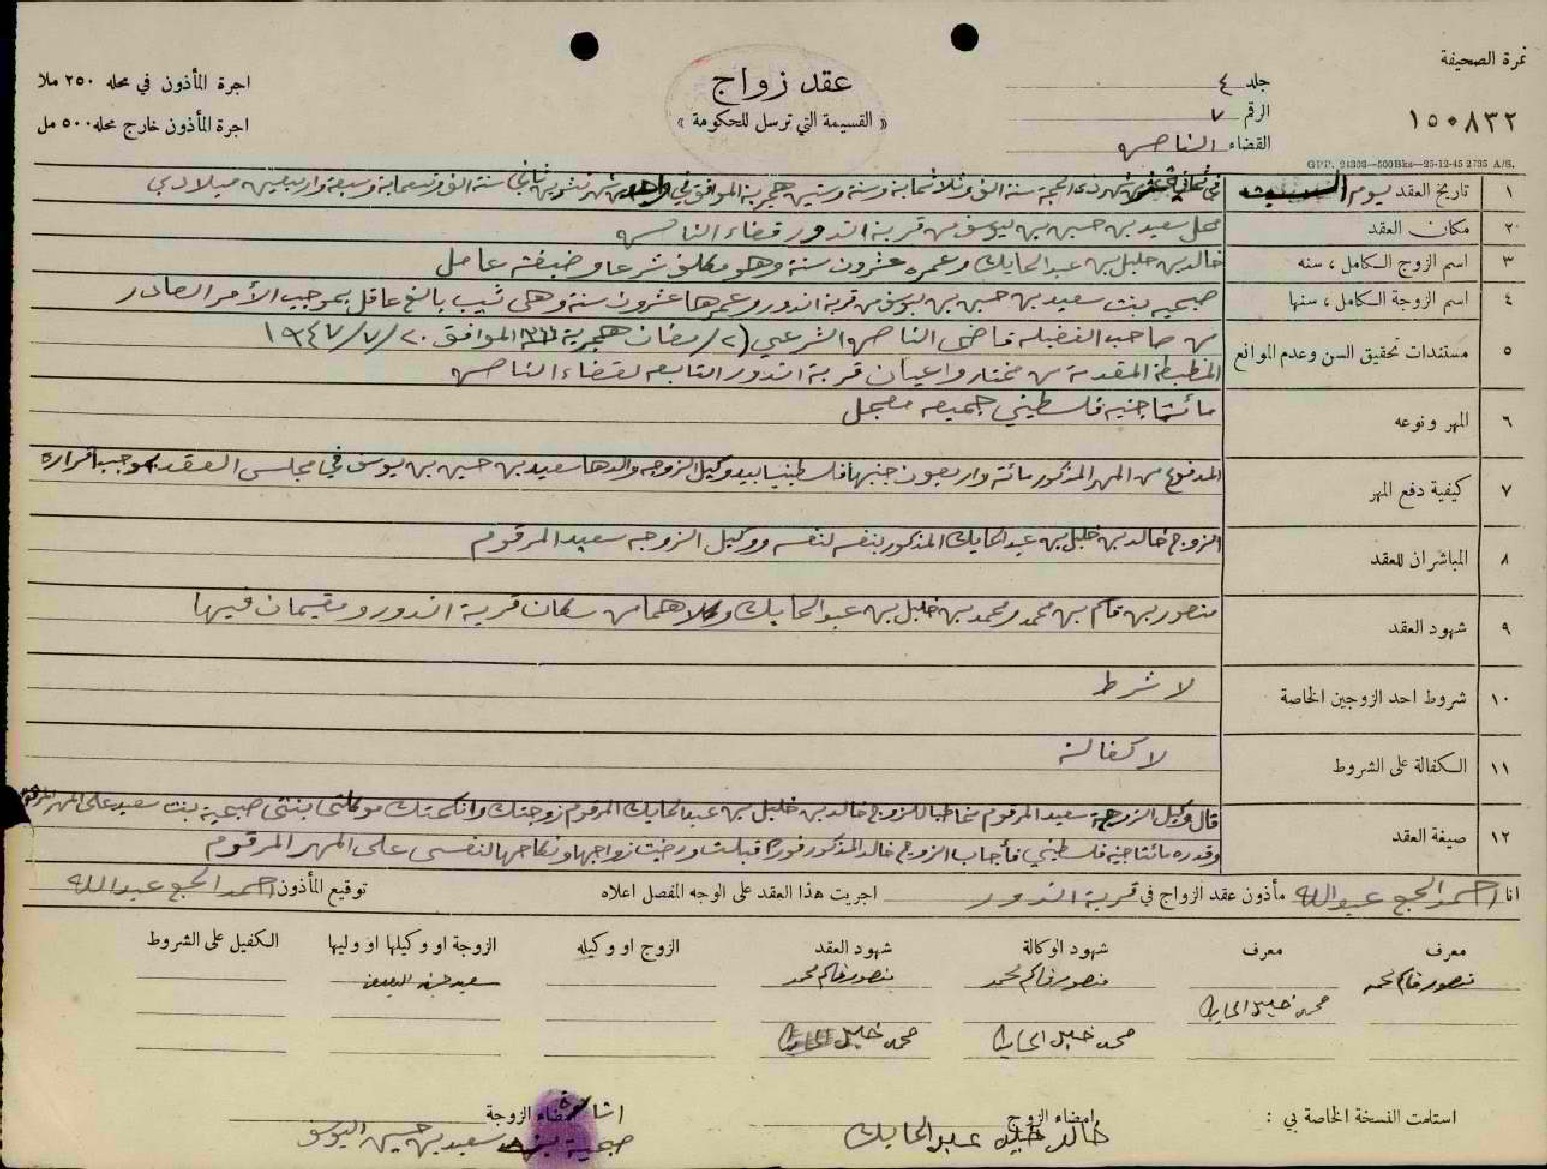 نمرة الصحيفة
١٥٠٨٣٢
جلد ٤
الرقم ٧
القضاء الناصره
عقد زواج
« القسيمة التي ترسل للحكومة »
اجرة المأذون في محله ٢٥٠ ملا
اجرة المأذون خارج محله ٥٠٠ مل
GPP. 21308—500Bks—25-12-45 2735 A/S.
١ تاريخ العقد يوم السبت في ثمانية عشر شهر ذي الحجة سنة الف وثلاثماية وستة وستين هجرية الموافق في واحد شهر تشرين ثاني سنة الف وتسعماية وسبعة واربعين ميلادي
٢ مكان العقد محل سعيد بن حسين بن يوسف من قرية اندور قضاء الناصره
٣ اسم الزوج الكامل ، سنه خالد بن خليل بن عبد الحايك وعمره عشرون سنة وهو مكلف شرعا وضيفته عامل
٤ اسم الزوجة الكامل ، سنها صبحيه بنت سعيد بن حسين بن يوسف من قرية اندور وعمرها عشرون سنة وهي ثيب بالغ عاقل بموجب الأمر الصادر
من صاحب الفضيلة قاضي الناصره الشرعي (٢/رمضان هجرية الموافق ٢٠/٧/١٩٤٧
٥ مستندات تحقيق السن وعدم الموانع المضبطة المقدمة من مختار واعيان قرية اندور التابعه لقضاء الناصره
٦ المهر ونوعه مائتا جنيه فلسطيني جميعه معجل
٧ كيفية دفع المهر المدفوع من المهر المذكور مائة واربعون جنيها فلسطينيا بيد وكيل الزوجه والدها سعيد بن حسين بن يوسف في مجلس العقد بموجب اقراره
٨ المباشران للعقد الزوج خالد بن خليل بن عبد الحايك المذكور بنفسه لنفسه ووكيل الزوجه سعيد المرقوم
٩ شهود العقد منصور بن قاسم بن محمد ومحمد بن خليل بن عبد الحايك وكلاهما من سكان قرية اندور ومقيمان فيها
١٠ شروط احد الزوجين الخاصة لا شرط
١١ الكفالة على الشروط لا كفالة
١٢ صيغة العقد قال وكيل الزوجة سعيد المرقوم مخاطبا للزوج خالد بن خليل بن عبد الحايك المرقوم زوجتك وانكحتك موكلتي ابنتي صبحية بنت سعيد على المهر المرقوم
وقدره مائتا جنيه فلسطيني فأجاب الزوج خالد المذكور فورا قبلت ورضيت زواجها ونكاحها لنفسي على المهر المرقوم
انا احمد الحج عبدالله مأذون عقد الزواج في قرية اندور اجريت هذا العقد على الوجه المفصل اعلاه توقيع المأذون احمد الحج عبدالله
معرف معرف شهود الوكالة شهود العقد الزوج او وكيله الزوجة او وكيلها او وليها الكفيل على الشروط
منصور قاسم محمد منصور قاسم محمد منصور قاسم محمد سعيد حسين اليوسف
محمد خليل الحايك
محمد خليل الحايك محمد خليل الحايك
استلمت النسخة الخاصة بي : امضاء الزوج اشارة امضاء الزوجة
خالد خليل عبد الحايك صبحية بنت سعيد بن حسين اليوسف